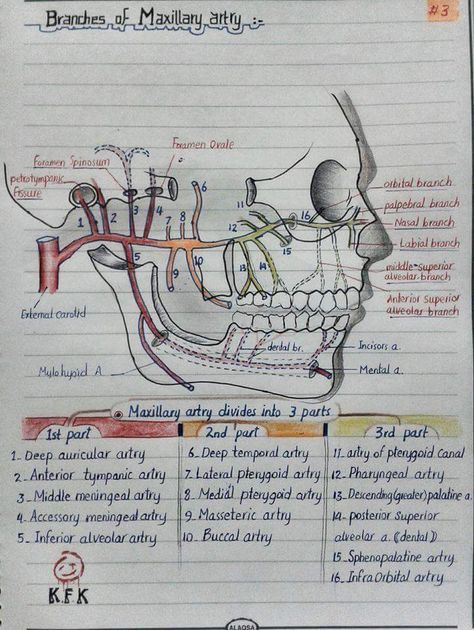 Branches of Maxillary artry :-
#3
Foramen Ovale
Foramen Spinosum
petrotympanic
fissure
orbital branch
palpebral branch
Nasal branch
Labial branch
middle superior
alveolar branch
Anterior Superior
alveolar branch
1
2
3
4
5
6
7
8
9
10
11
12
13
14
15
16
External Carotid
Mylohyoid A.
dental br.
Incisors a.
Mental a.
Maxillary artry divides into 3 parts
1st part
1_ Deep auricular artry
2_ Anterior tympanic artry
3_ Middle meningeal artry
4_ Accessory meningeal artry
5_ Inferior alveolar artry
2nd part
6_ Deep temporal artry
7_ Lateral pterygoid artry
8_ Medial pterygoid artry
9_ Masseteric artry
10_ Buccal artry
3rd part
11_ artry of pterygoid Canal
12_ Pharyngeal artry
13_ Descending (greater) palatine a.
14_ posterior Superior
alveolar a. (dental)
15_ Sphenopalatine artry
16_ Infra Orbital artry
K.F.K
ALAQSA